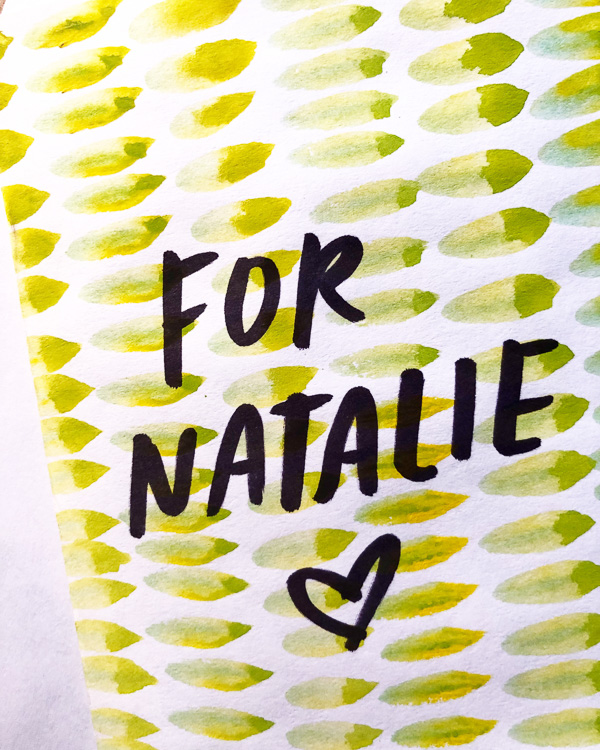 FOR
NATALIE